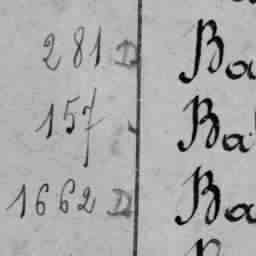 281 D Ba
157 Ba
1662 D Ba